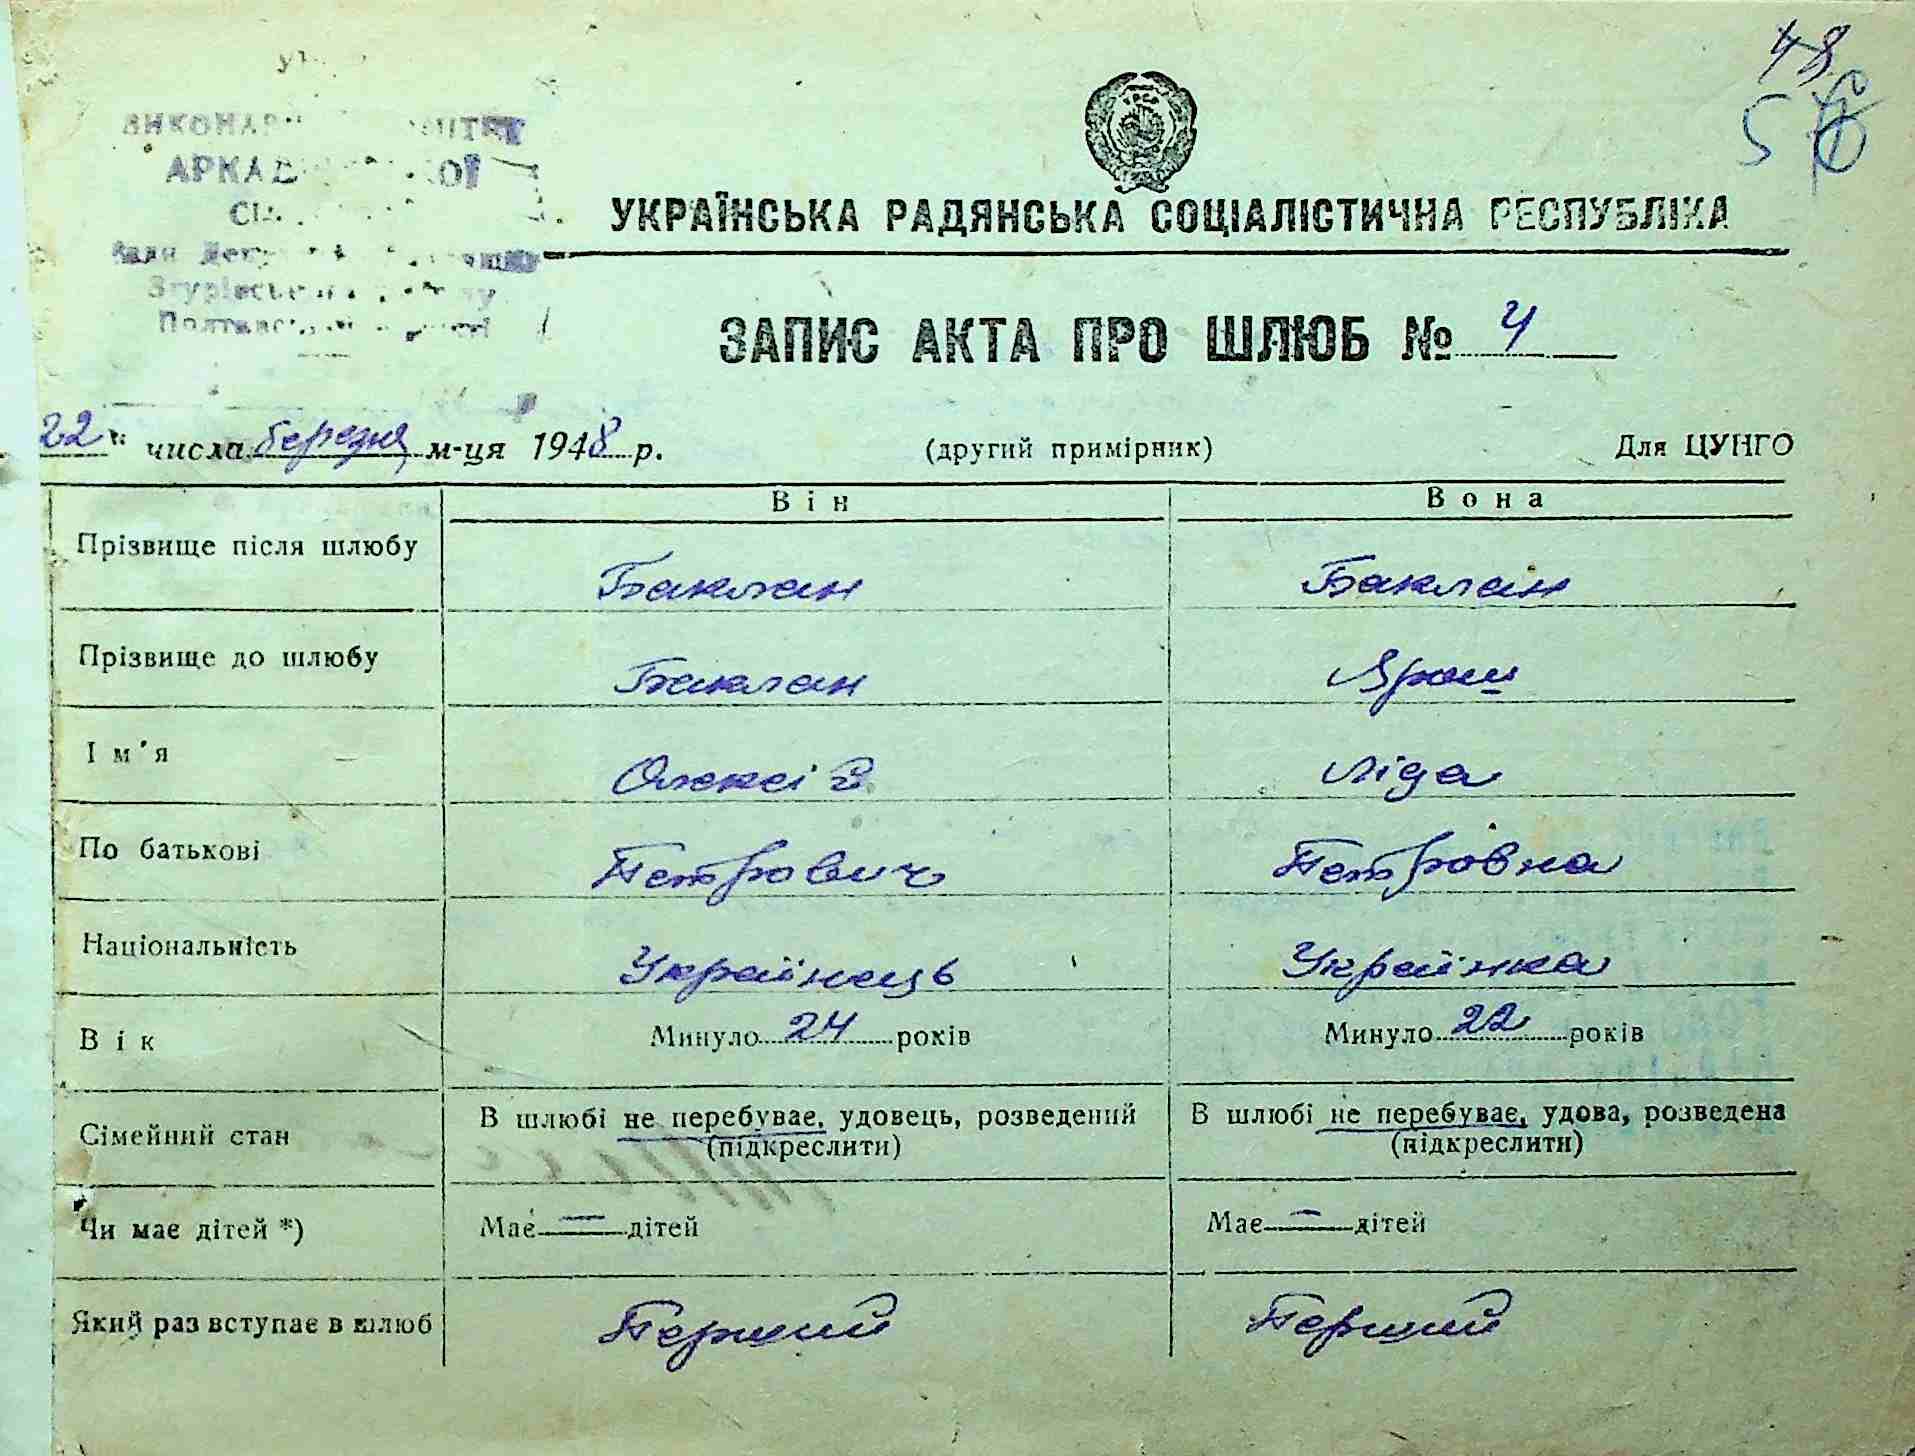 48
5
УРСР
АРКА
Полтавс
УКРАЇНСЬКА РАДЯНСЬКА СОЦІАЛІСТИЧНА РЕСПУБЛІКА
ЗАПИС АКТА ПРО ШЛЮБ № 4
22 " числа березня м-ця 1948 р. (другий примірник) Для ЦУНГО
Він Вона
Прізвище після шлюбу Баклан Баклан
Прізвище до шлюбу Баклан Ярош
Ім'я Олексій Ліда
По батькові Петрович Петровна
Національність Українець Українка
Вік Минуло 24 років Минуло 22 років
Сімейний стан В шлюбі не перебуває, удовець, розведений В шлюбі не перебуває, удова, розведена
(підкреслити) (підкреслити)
Чи має дітей *) Має — дітей Має — дітей
Який раз вступає в шлюб Перший Перший